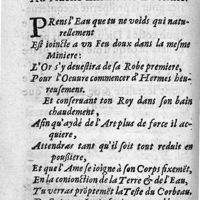 PRens l'Eau que tu ne voids qui natu-
rellement
Est ioincte a vn Feu doux dans la mesme
Miniere:
L'Or s'y devestira de sa Robe premiere,
Pour l'Oeuvre commencer d'Hermes heu-
reusement.
Et conservant ton Roy dans son bain
chaudement,
Afin qu'aydé de l'Art plus de force il ac-
quiere,
Attendras tant qu'il soit tout reduit en
poussiere,
Et que l'Ame se joigne à son Corps fixemẽt,
En la conionction de la Terre & de l'Eau,
Tu verras prõptemẽt la Teste du Corbeau,